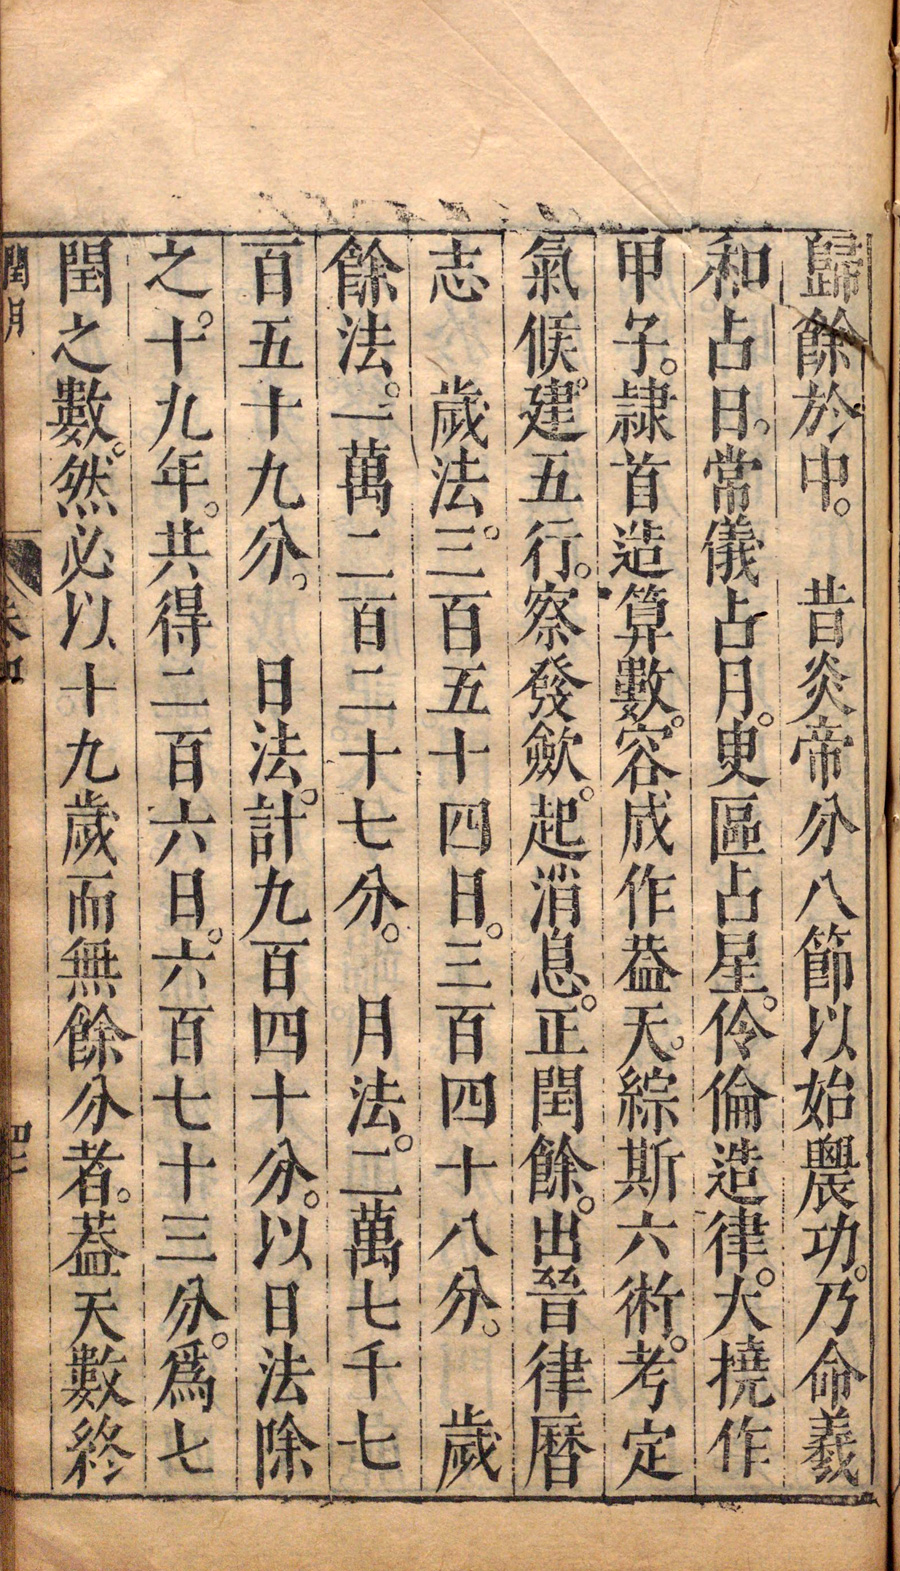 歸餘於中。　昔炎帝分八節以始農功。乃命羲
和占日。常儀占月。臾區占星。伶倫造律。大撓作
甲子。隷首造算數。容成作葢天。綜斯六術。考定
氣候。建五行。察發歛。起消息。正閏餘。出晉律曆
志　歲法。三百五十四日。三百四十八分。　歲
餘法。一萬二百二十七分。　月法。二萬七千七
百五十九分。　日法。計九百四十分。以日法除
之。十九年。共得二百六日。六百七十三分。爲七
閏之數。然必以十九歲而無餘分者。葢天數終
閏月